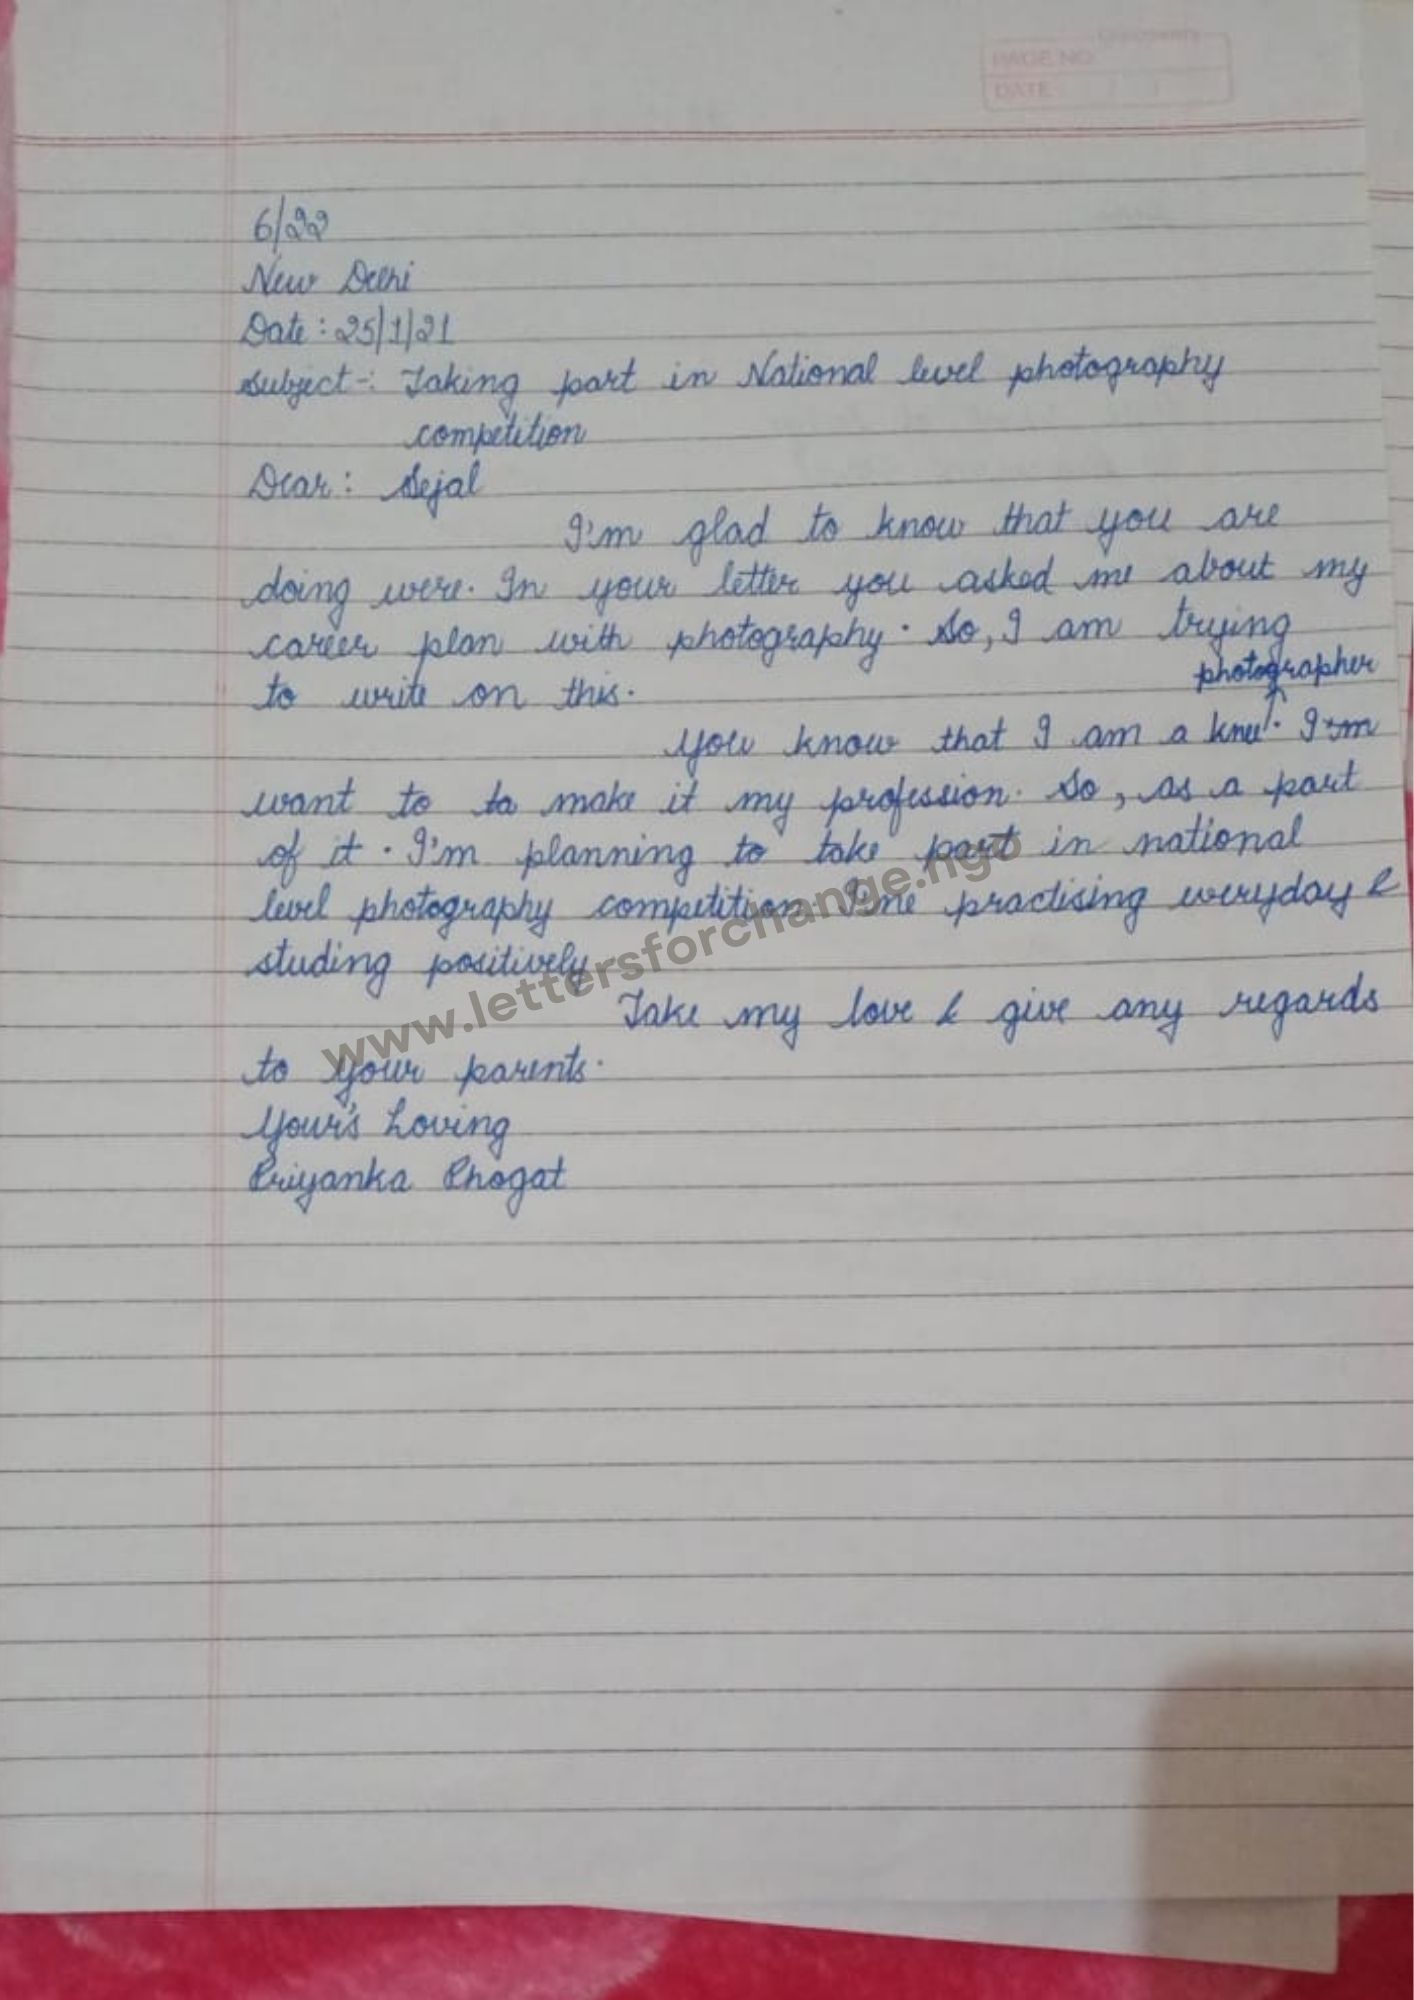 Classmate
PAGE NO.
DATE
6/22
New Delhi
Date : 25/1/21
Subject-: Taking part in National level photography
competition
Dear : Sejal
I'm glad to know that you are
doing were. In your letter you asked me about my
career plan with photography. So, I am trying
to write on this.
photographer
You know that I am a knee. I'm
want to to make it my profession. So, as a part
of it. I'm planning to take part in national
level photography competition. I'me practising everyday &
studing positively
Take my love & give any regards
to your parents.
Your's Loving
Priyanka Phogat
www.lettersforchange.ngo